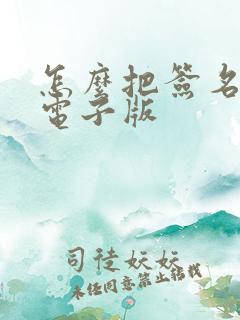 怎麼把簽名
電子版
司徒妏妏
未經同意禁止轉載